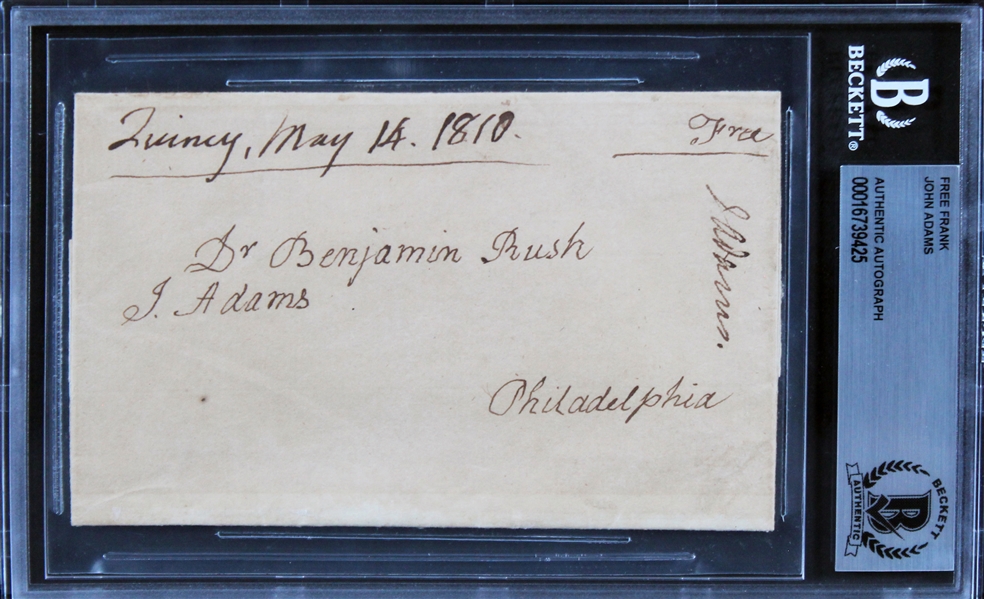 Quincy, May 14. 1810.
Free
Dr Benjamin Rush
J. Adams
JAdams.
Philadelphia
BECKETT®
B
FREE FRANK
JOHN ADAMS
AUTHENTIC AUTOGRAPH
00016739425
BECKETT
AUTHENTIC